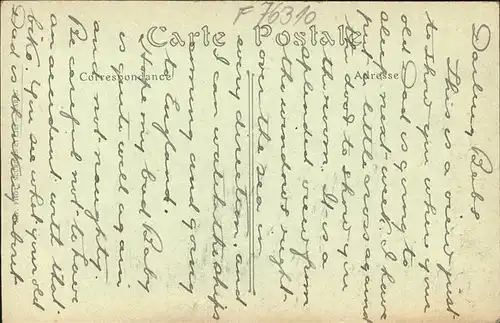 F 76310
Carte Postale
Correspondance
Adresse
Darling Babs
This is a view just
to show you where your
old Dad is going to
sleep next week. I have
put a little cross against
the door to show you
the room. It is a
splendid view from
the windows right
over the sea in
every direction, and
I can watch the ships
coming and going
to England.
Hope my bad Baby
is quite well again
and not naughty.
Be careful not to have
an accident with that
bike. You see what your old
Dad is thinking about